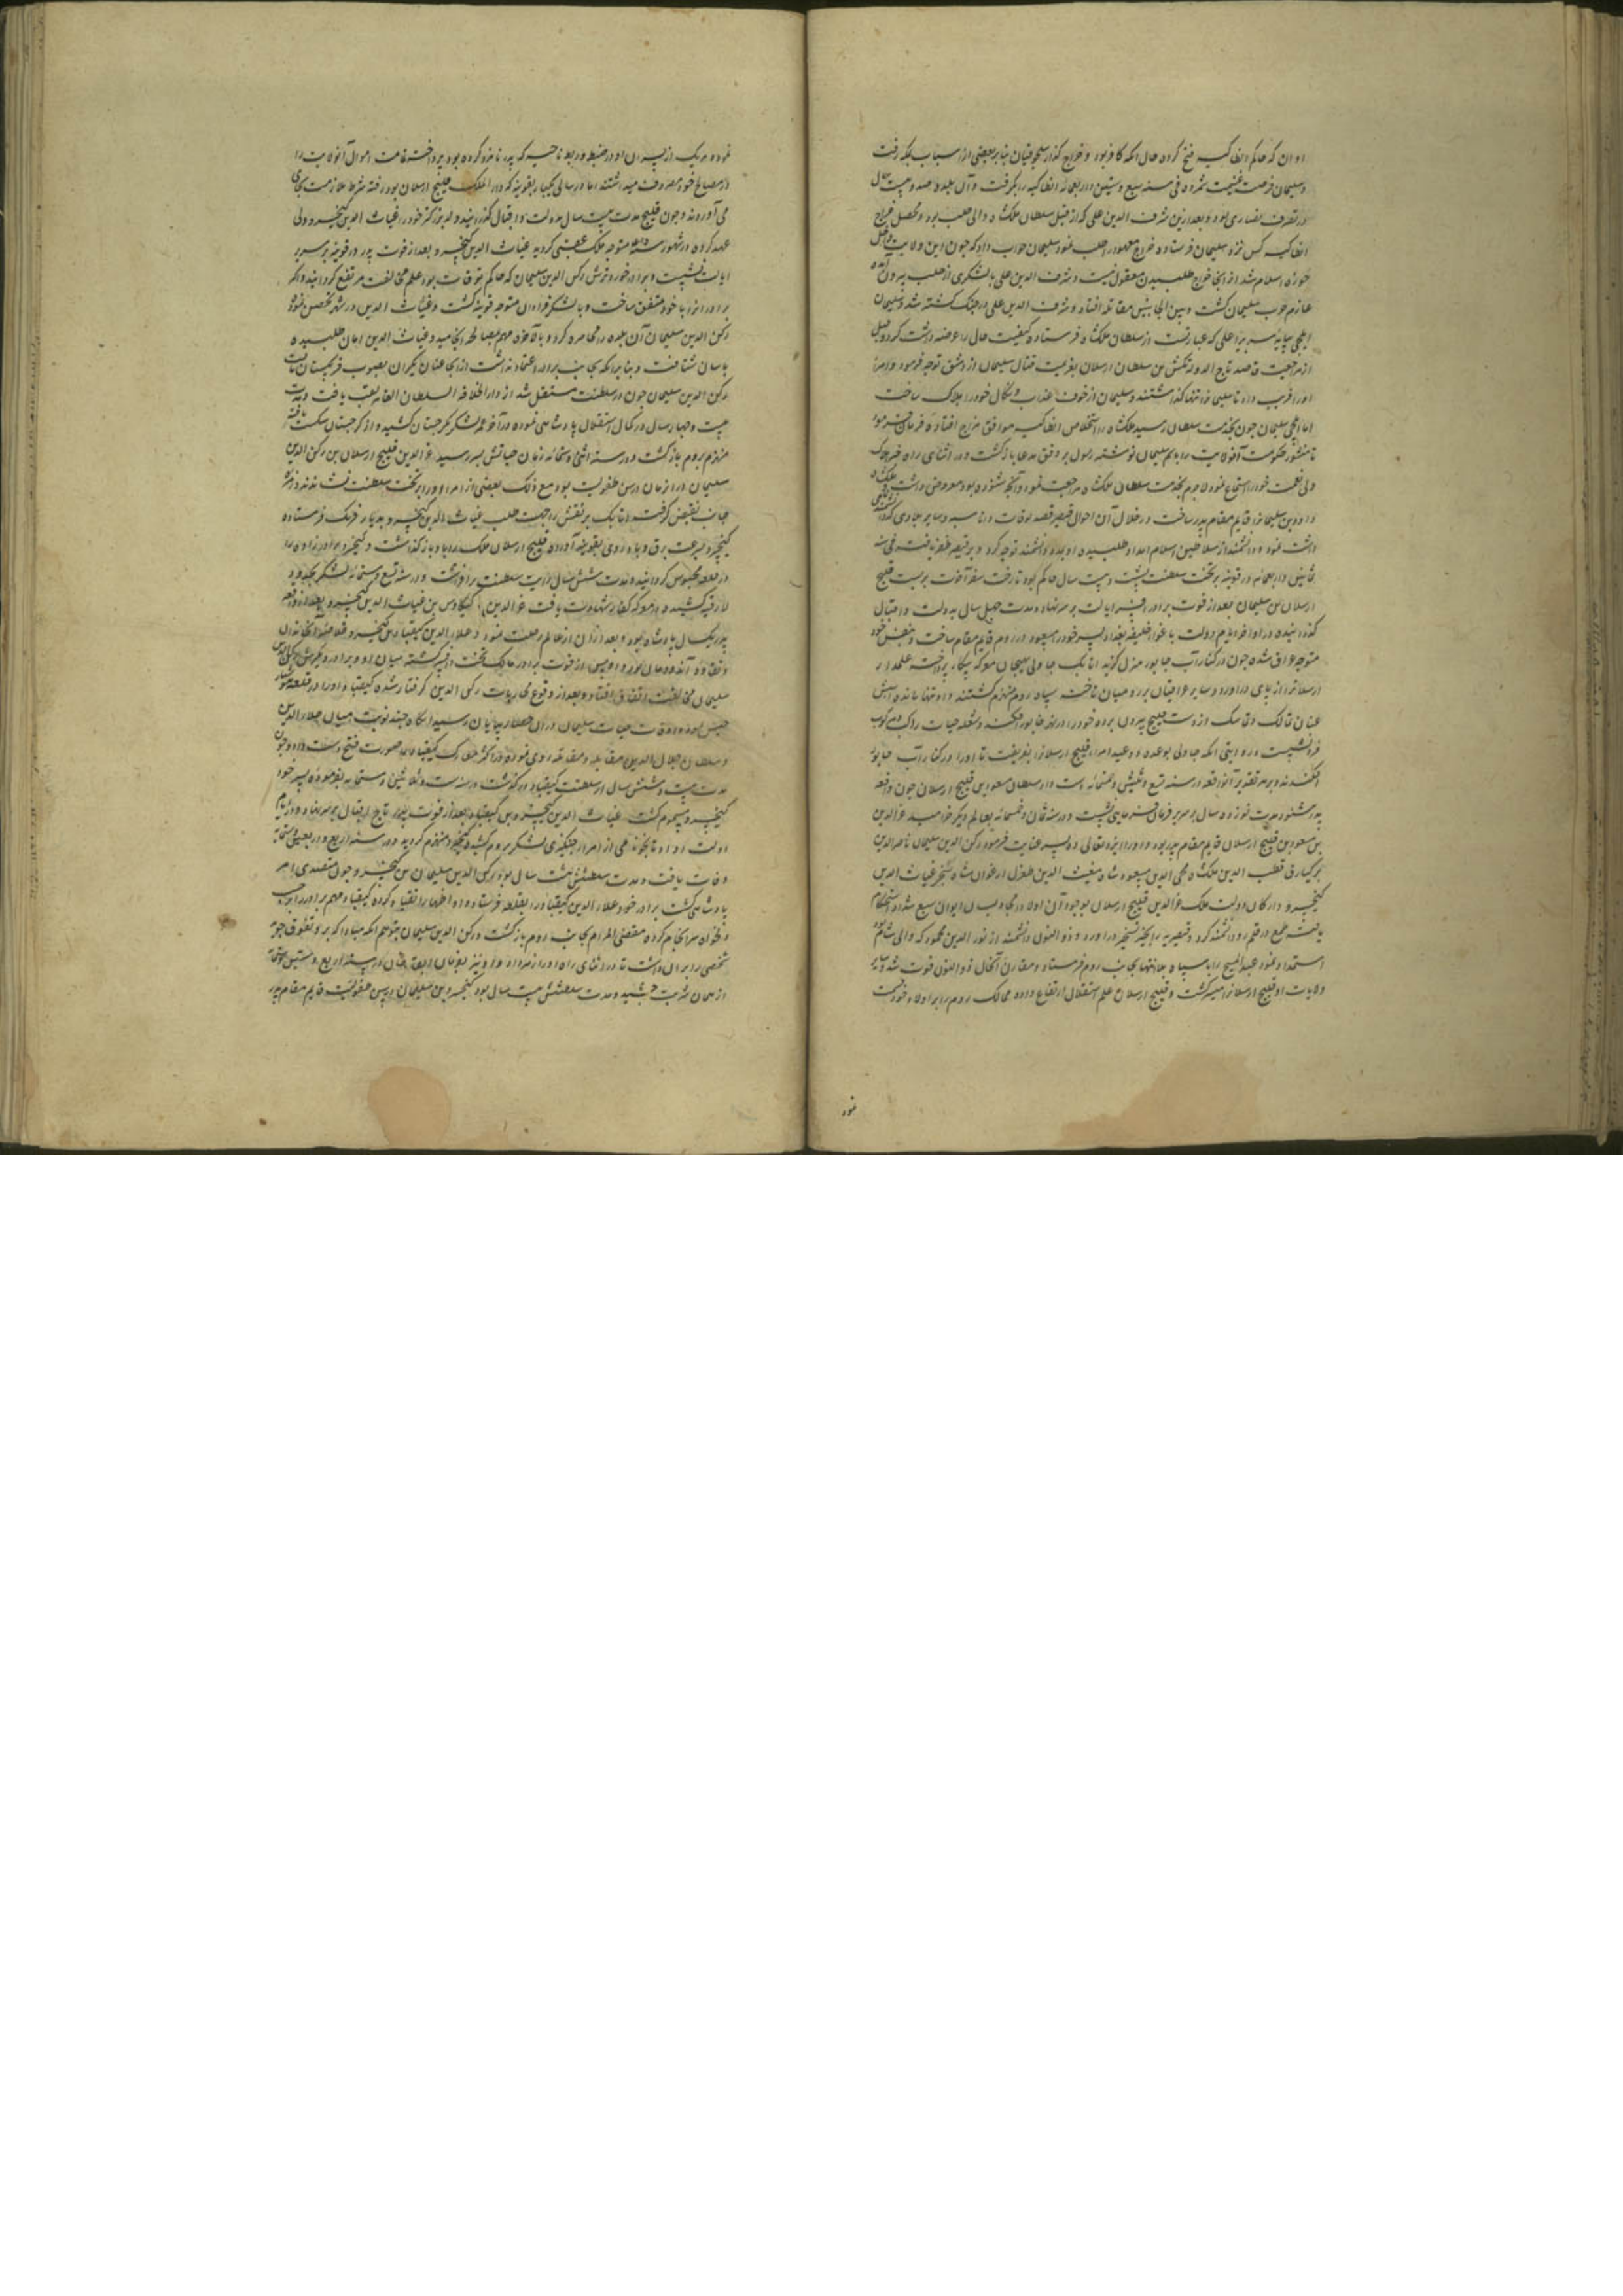 او ان که حاکم انطاکیه فتح کرده حال آنکه کافر بود و خراج گذار سلجوقیان بنابر بعضی از اسباب بجکه رفت
و سلیمان فرصت غنیمت شمرده فی سنه سبع وستین و اربعمائه انطاکیه را بگرفت و آن بلده صد و بیست سال
در تصرف نصاری بود و بعد ازین شرف الدین علی که از قبل سلطان ملکشاه والی حلب بود و محصل خراج
انطاکیه کس نزد سلیمان فرستاده خراج معهود را طلب نمود سلیمان جواب داد که چون این ولایت داخل
حوزه اسلام شد از آنجا خراج طلبیدن معقول نیست و شرف الدین علی با لشکری از حلب بیرون آمده
عازم حرب سلیمان گشت و بین الجانبین مقاتله افتاد و شرف الدین علی در جنگ کشته شد و سلیمان
ایلچی بپایه سریر اعلی که عبارتست از سلطان ملکشاه فرستاده کیفیت حال را عرضه داشت کرد و قبل
از مراجعت قاصد تاج الدوله تتش بن سلطان ارسلان بعزیمت قتال سلیمان از دمشق توجه فرمود و امرا
او را فریب داده تا سلیمانرا تنها گذاشتند و سلیمان از خوف عذاب و نکال خود را هلاک ساخت
اما ایلچی سلیمان چون بخدمت سلطان رسید ملکشاه را استخلاص انطاکیه موافق مزاج افتاده فرمان فرمود
تا منشور حکومت آنولایت را بنام سلیمان نوشته رسول بر وفق مدعا بازگشت و در اثنای راه خبر هلاک
ولی نعمت خود را استماع نمود لاجرم بخدمت سلطان ملکشاه مراجعت نمود و آنچه شنوده بود معروض داشت ملکشاه
داود بن سلیمانرا قایم مقام پدر ساخت و در خلال آن احوال قیصر قصد توقات و اماسیه و سایر بلادی
داشت نمود و دانشمند از سلاطین اسلام امداد طلبیده او بدد دانشمند توجه کرد و بر قیصر ظفر یافت فی سنه
ثمانین و اربعمائه در قونیه بر تخت سلطنت نشست و بیست سال حاکم بود تا رخت سفر آخرت بربست قلیج
ارسلان بن سلیمان بعد از فوت برادر افسر ایالت بر سر نهاد و مدت چهل سال بدولت و اقبال
گذرانیده در اواخر ایام دولت باغوا خلیفه بغداد پسر خود را مسعود در روم قایم مقام ساخت و بنفس خود
متوجه عراق شده چون در کنار آب خابور منزل گزید اتابک جاولی بیجان معرکه پیکار پرداخت علمدار
ارسلانرا از پای درآورد و سایر عراقیان بر رومیان تاخت سپاه روم منهزم گشتند و او تنها مانده اسبش
عنان تمالک و تماسک از دست قلیج بیرون برده خود را در نهر خابور افکند و شعله حیات
فرو نشست و روایتی آنکه جاولی بوعده و وعید امراء قلیج ارسلانرا بفریفت تا او را در کنار آب خابور
افکندند و بر هر تقدیر آنواقعه در سنه تسع و ثلثین و خمسمائه دست داد سلطان مسعود بن قلیج ارسلان چون واقعه
پدر شنود مدت نوزده سال بر سریر فرمانفرمایی نشست و در سنه ثمان و خمسمائه بعالم دیگر خرامید عزالدین
بن مسعود بن قلیج ارسلان قایم مقام پدر بود و او را ایزد تعالی ده پسر عنایت فرمود رکن الدین سلیمان ناصرالدین
برکیارق قطب الدین ملکشاه محی الدین مسعود شاه مغیث الدین طغرل ارغوان شاه سنجر غیاث الدین
کیخسرو و ارکان دولت ملک عزالدین قلیج ارسلان بوجود آن اولاد استحکام
یافت طمع در قلمرو دانشمند کرد و قیصریه را بحیز تسخیر درآورد و ذوالنون دانشمند از نورالدین محمود که والی شام بود
استمداد نمود عبدالمسیح را با سپاه بلاانتها بجانب روم فرستاد و مقارن آنحال ذوالنون فوت شد و سایر
ولایات او قلیج ارسلانرا میسر گشت و قلیج ارسلان علم استقلال ارتفاع داده ممالک روم را بر اولاد خود قسمت
نمود
نموده هر یک از پسران او در ضبط و ربط ناحیه که پدر نامزد کرده بود پرداخته تمامت اموال آنولایت را
در مصالح خود مصروف میداشتند اما در سالی یکبار بقونیه که دارالملک قلیج ارسلان بود رفته شرط ملازمت بجای
می آوردند و چون قلیج مدت بیست سال بدولت و اقبال گذرانید ولد بزرگتر خود را غیاث الدین کیخسرو ولی
عهد کرده در شهور سنه متوجه ملک عقبی گردید غیاث الدین کیخسرو بعد از فوت پدر در قونیه بر سریر
ایالت نشست و برادر خردترش رکن الدین سلیمان که حاکم توقات بود علم مخالفت مرتفع گردانید و اکثر
برادرانرا با خود متفق ساخت و با لشکر فراوان متوجه قونیه گشت و غیاث الدین در شهر متحصن نمود
رکن الدین سلیمان آن بلده را محاصره کرد و بالاخره مهم بمصالحه انجامید و غیاث الدین امان طلبیده
بامان شتافت و بنابر آنکه بجانب برادر اعتماد نداشت از آنجا عنان یکران بصوب فرنگستان تافت
رکن الدین سلیمان چون در سلطنت مستقل شد از دارالخلافه السلطان القاهر لقب یافت و مدت
بیست و چهار سال در کمال استقلال پادشاهی نموده در آخر عمر لشکر بگرجستان کشید و از گرجستان شکست یافته
منهزم بروم بازگشت و در سنه اثنی و ستمائه زمان حیاتش بسر رسید عزالدین قلیج ارسلان بن رکن الدین
سلیمان در آن زمان در سن طفولیت بود مع ذلک بعضی از امرا او را بر تخت سلطنت نشاندند و زمره
جانب نقیض گرفت اتابک برنقش را جهت طلب غیاث الدین کیخسرو بدیار فرنگ فرستاده
کیخسرو بسرعت برق و باد روی بقونیه آورده قلیج ارسلان ملک را باو بازگذاشت و کیخسرو برادرزاده را
در قلعه محبوس گردانید و مدت شش سال رایت سلطنت برافراشت و در سنه تسع و ستمائه لشکر بحدود
لارقیه کشیده در معرکه کفار شهادت یافت عزالدین کیکاوس بن غیاث الدین کیخسرو بعد از واقعه
پدر یکسال پادشاه بود و بعد از آن از عالم رحلت نمود و علاءالدین کیقباد بن کیخسرو
سلیمان مخالفت اتفاق افتاد و بعد از وقوع محاربات رکن الدین گرفتار شده کیقباد او را در قلعه
حبس نمود و اوقات حیات سلیمان در آن حصار بپایان رسید آنگاه چند نوبت میان جلال الدین
و سلطان جلال الدین مقابله و مقاتله روی نموده در اکثر معارک کیقباد را صورت فتح دست داد و چون
مدت بیست و شش سال از سلطنت کیقباد درگذشت در سنه ست و ثلاثین و ستمایه بفرموده پسر خود
کیخسرو مسموم گشت غیاث الدین کیخسرو بن کیقباد بعد از فوت پدر تاج اقبال بر سر نهاد و در ایام
دولت او تایجونویان از امراء چنگیزی لشکر بروم کشیده کیخسرو منهزم گردید و در سنه اربع و اربعین و ستمایه
وفات یافت و مدت سلطنتش هشت سال بود رکن الدین سلیمان بن کیخسرو چون متصدی امر
پادشاهی گشت برادر خود علاءالدین کیقباد را بقلعه فرستاد و او اظهار انقیاد کرده کیقباد مهم برادر را بر حسب
دلخواه سرانجام کرده مقضی المرام بجانب روم بازگشت و رکن الدین سلیمان متوهم آنکه مبادا که بر وی تفوق جوید
شخصی را بر آن داشت تا در اثنای راه او را زهر داد
از همان شربت چشید و مدت سلطنتش بیست سال بود کیخسرو بن سلیمان در سن طفولیت قایم مقام پدر